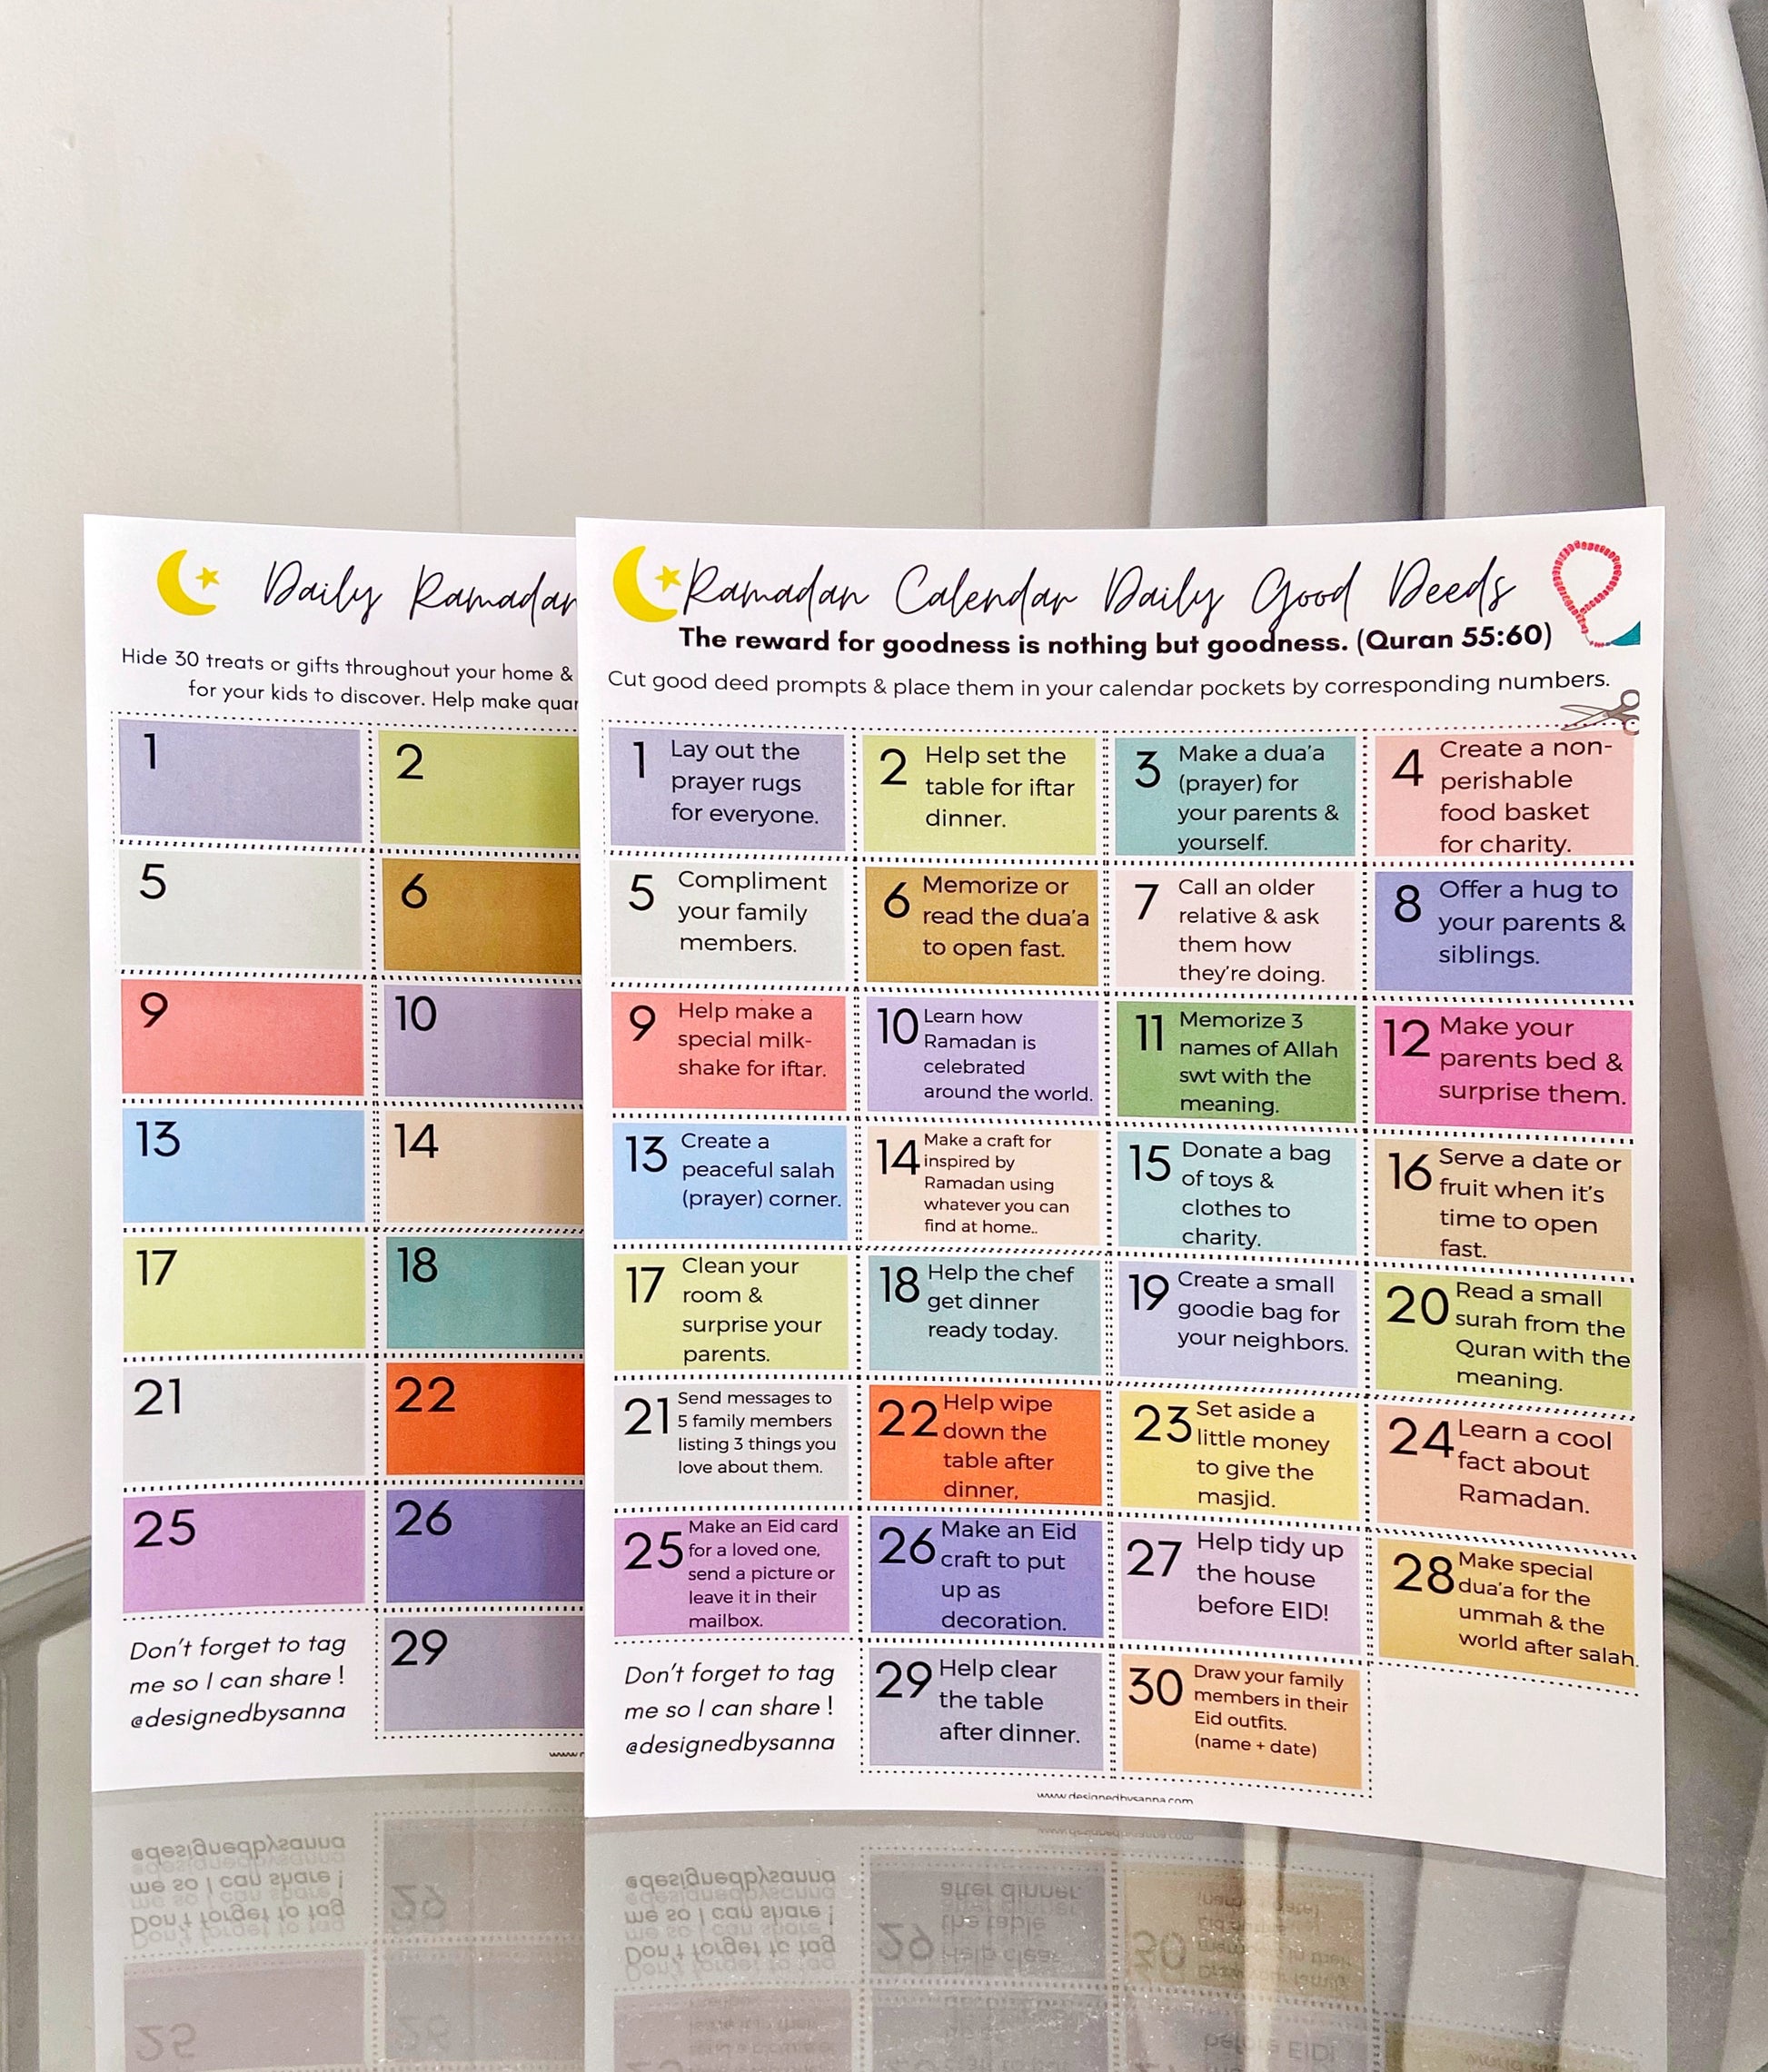 Daily Ramadan
Hide 30 treats or gifts throughout your home &
for your kids to discover. Help make
1
2
5
6
9
10
13
14
17
18
21
22
25
26
Don't forget to tag
me so I can share !
@designedbysanna
29
Ramadan Calendar Daily Good Deeds
The reward for goodness is nothing but goodness. (Quran 55:60)
Cut good deed prompts & place them in your calendar pockets by corresponding numbers.
1 Lay out the
prayer rugs
for everyone.
2 Help set the
table for iftar
dinner.
3 Make a dua'a
(prayer) for
your parents &
yourself.
4 Create a non-
perishable
food basket
for charity.
5 Compliment
your family
members.
6 Memorize or
read the dua'a
to open fast.
7 Call an older
relative & ask
them how
they're doing.
8 Offer a hug to
your parents &
siblings.
9 Help make a
special milk-
shake for iftar.
10 Learn how
Ramadan is
celebrated
around the world.
11 Memorize 3
names of Allah
swt with the
meaning.
12 Make your
parents bed &
surprise them.
13 Create a
peaceful salah
(prayer) corner.
14 Make a craft for
inspired by
Ramadan using
whatever you can
find at home..
15 Donate a bag
of toys &
clothes to
charity.
16 Serve a date or
fruit when it's
time to open
fast.
17 Clean your
room &
surprise your
parents.
18 Help the chef
get dinner
ready today.
19 Create a small
goodie bag for
your neighbors.
20 Read a small
surah from the
Quran with the
meaning.
21 Send messages to
5 family members
listing 3 things you
love about them.
22 Help wipe
down the
table after
dinner,
23 Set aside a
little money
to give the
masjid.
24 Learn a cool
fact about
Ramadan.
25 Make an Eid card
for a loved one,
send a picture or
leave it in their
mailbox.
26 Make an Eid
craft to put
up as
decoration.
27 Help tidy up
the house
before EID!
28 Make special
dua'a for the
ummah & the
world after salah.
Don't forget to tag
me so I can share !
@designedbysanna
29 Help clear
the table
after dinner.
30 Draw your family
members in their
Eid outfits.
(name + date)
www.designedbysanna.com